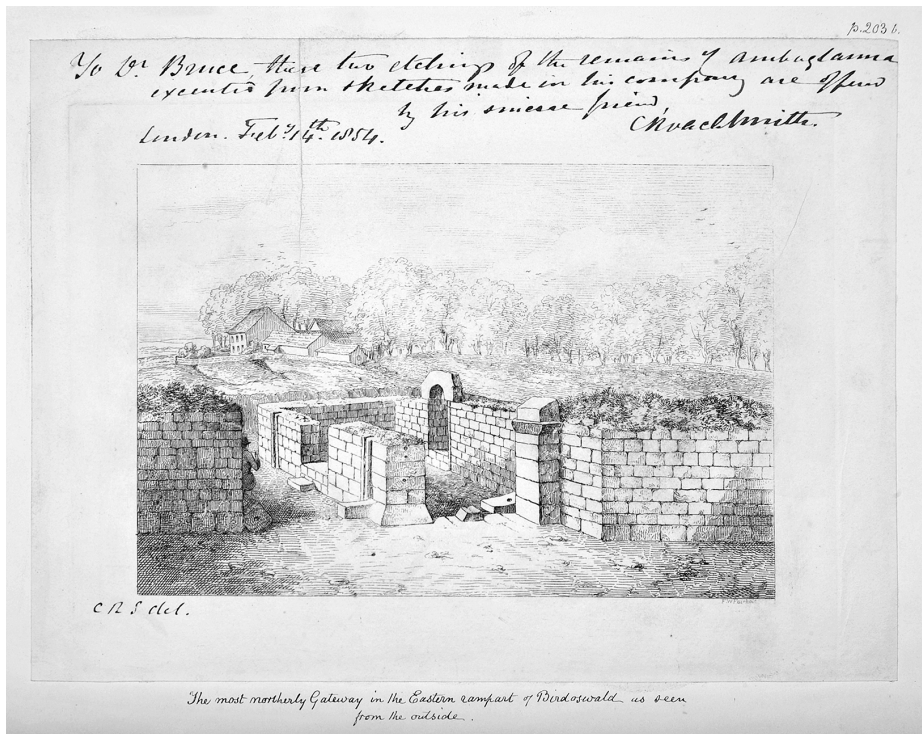 p. 203 b.
To Dr. Bruce, these two etchings of the remains of Amboglanna
executed from sketches made in his company are offered
by his sincere friend,
C Roach Smith.
London. Feby. 14th. 1854.
C R S del.
The most northerly Gateway in the Eastern rampart of Birdoswald as seen
from the outside.